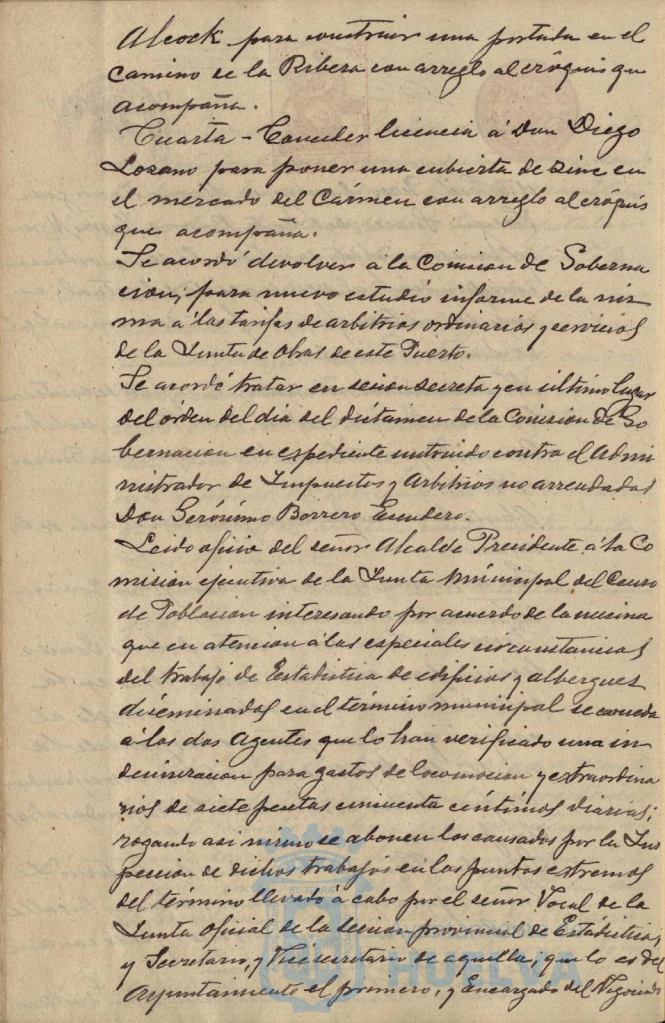 Alcock para construir una portada en el
camino de la Ribera con arreglo al cróquis que
acompaña.
Cuarta - Conceder licencia á Don Diego
Lozano para poner una cubierta de zinc en
el mercado del Cármen con arreglo al cróquis
que acompaña.
Se acordó devolver á la Comision de Goberna
cion, para nuevo estudio informe de la mis
ma á las tarifas de arbitrios ordinarios y servicios
de la Junta de Obras de este Puerto.
Se acordó tratar en sesion secreta y en último lugar
del órden del dia del dictamen de la Comision de Go
bernacion en expediente instruido contra el Admi
nistrador de Impuestos y Arbitrios no arrendados
Don Gerónimo Borrero Escudero.
Leido oficio del señor Alcalde Presidente á la Co
mision ejecutiva de la Junta Municipal del Censo
de Poblacion interesando por acuerdo de la misma
que en atencion á las especiales circunstancias
del trabajo de Estadistica de edificios y albergues
diseminados en el término municipal se conceda
á los dos Agentes que lo han verificado una in
demnizacion para gastos de locomocion y extraordina
rios de siete pesetas cincuenta céntimos diarias;
rogando asi mismo se abonen los causados por la Ins
peccion de dichos trabajos en los puntos extremos
del término llevado á cabo por el señor Vocal de la
Junta oficial de la seccion provincial de Estadistica,
y Secretario, y Vicesecretario de aquella, que lo es del
Ayuntamiento el primero, y Encargado del Negociado
HUELVA